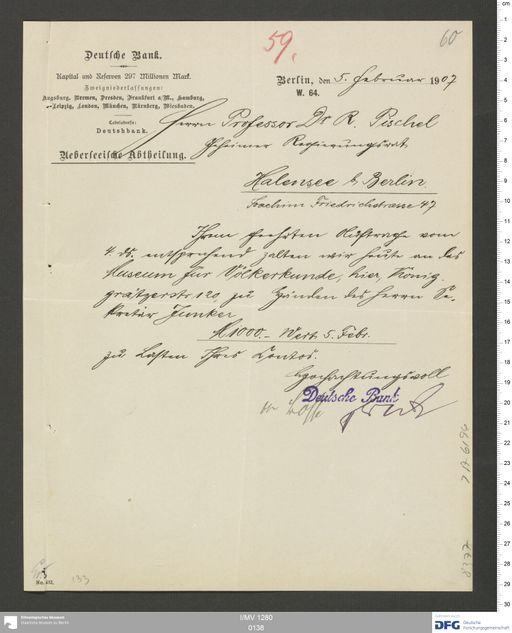 59.
60
Deutsche Bank.
Kapital und Reserven 297 Millionen Mark.
Zweigniederlassungen:
Augsburg, Bremen, Dresden, Frankfurt a/M., Hamburg,
Leipzig, London, München, Nürnberg, Wiesbaden.
Cabeladresse:
Deutschbank.
Ueberseeische Abtheilung.
Berlin, den 5. Februar 1907
W. 64.
Herrn Professor Dr R. Pischel
Geheimer Regierungsrat
Halensee b/Berlin.
Joachim Friedrichstrasse 47
Ihrem geehrten Auftrage vom
4. ds. entsprechend zalten wir heute an das
Museum für Völkerkunde, hier, König-
grätzerstr. 120, zu Händen des Herrn Se-
kretär Junker
M 1000.- Wert 5. Febr.
zu Lasten Ihres Contos.
Hochachtungsvoll
Deutsche Bank
133
Ethnologisches Museum
Staatliche Museen zu Berlin
I/MV 1280
0138
DFG Deutsche
Forschungsgemeinschaft